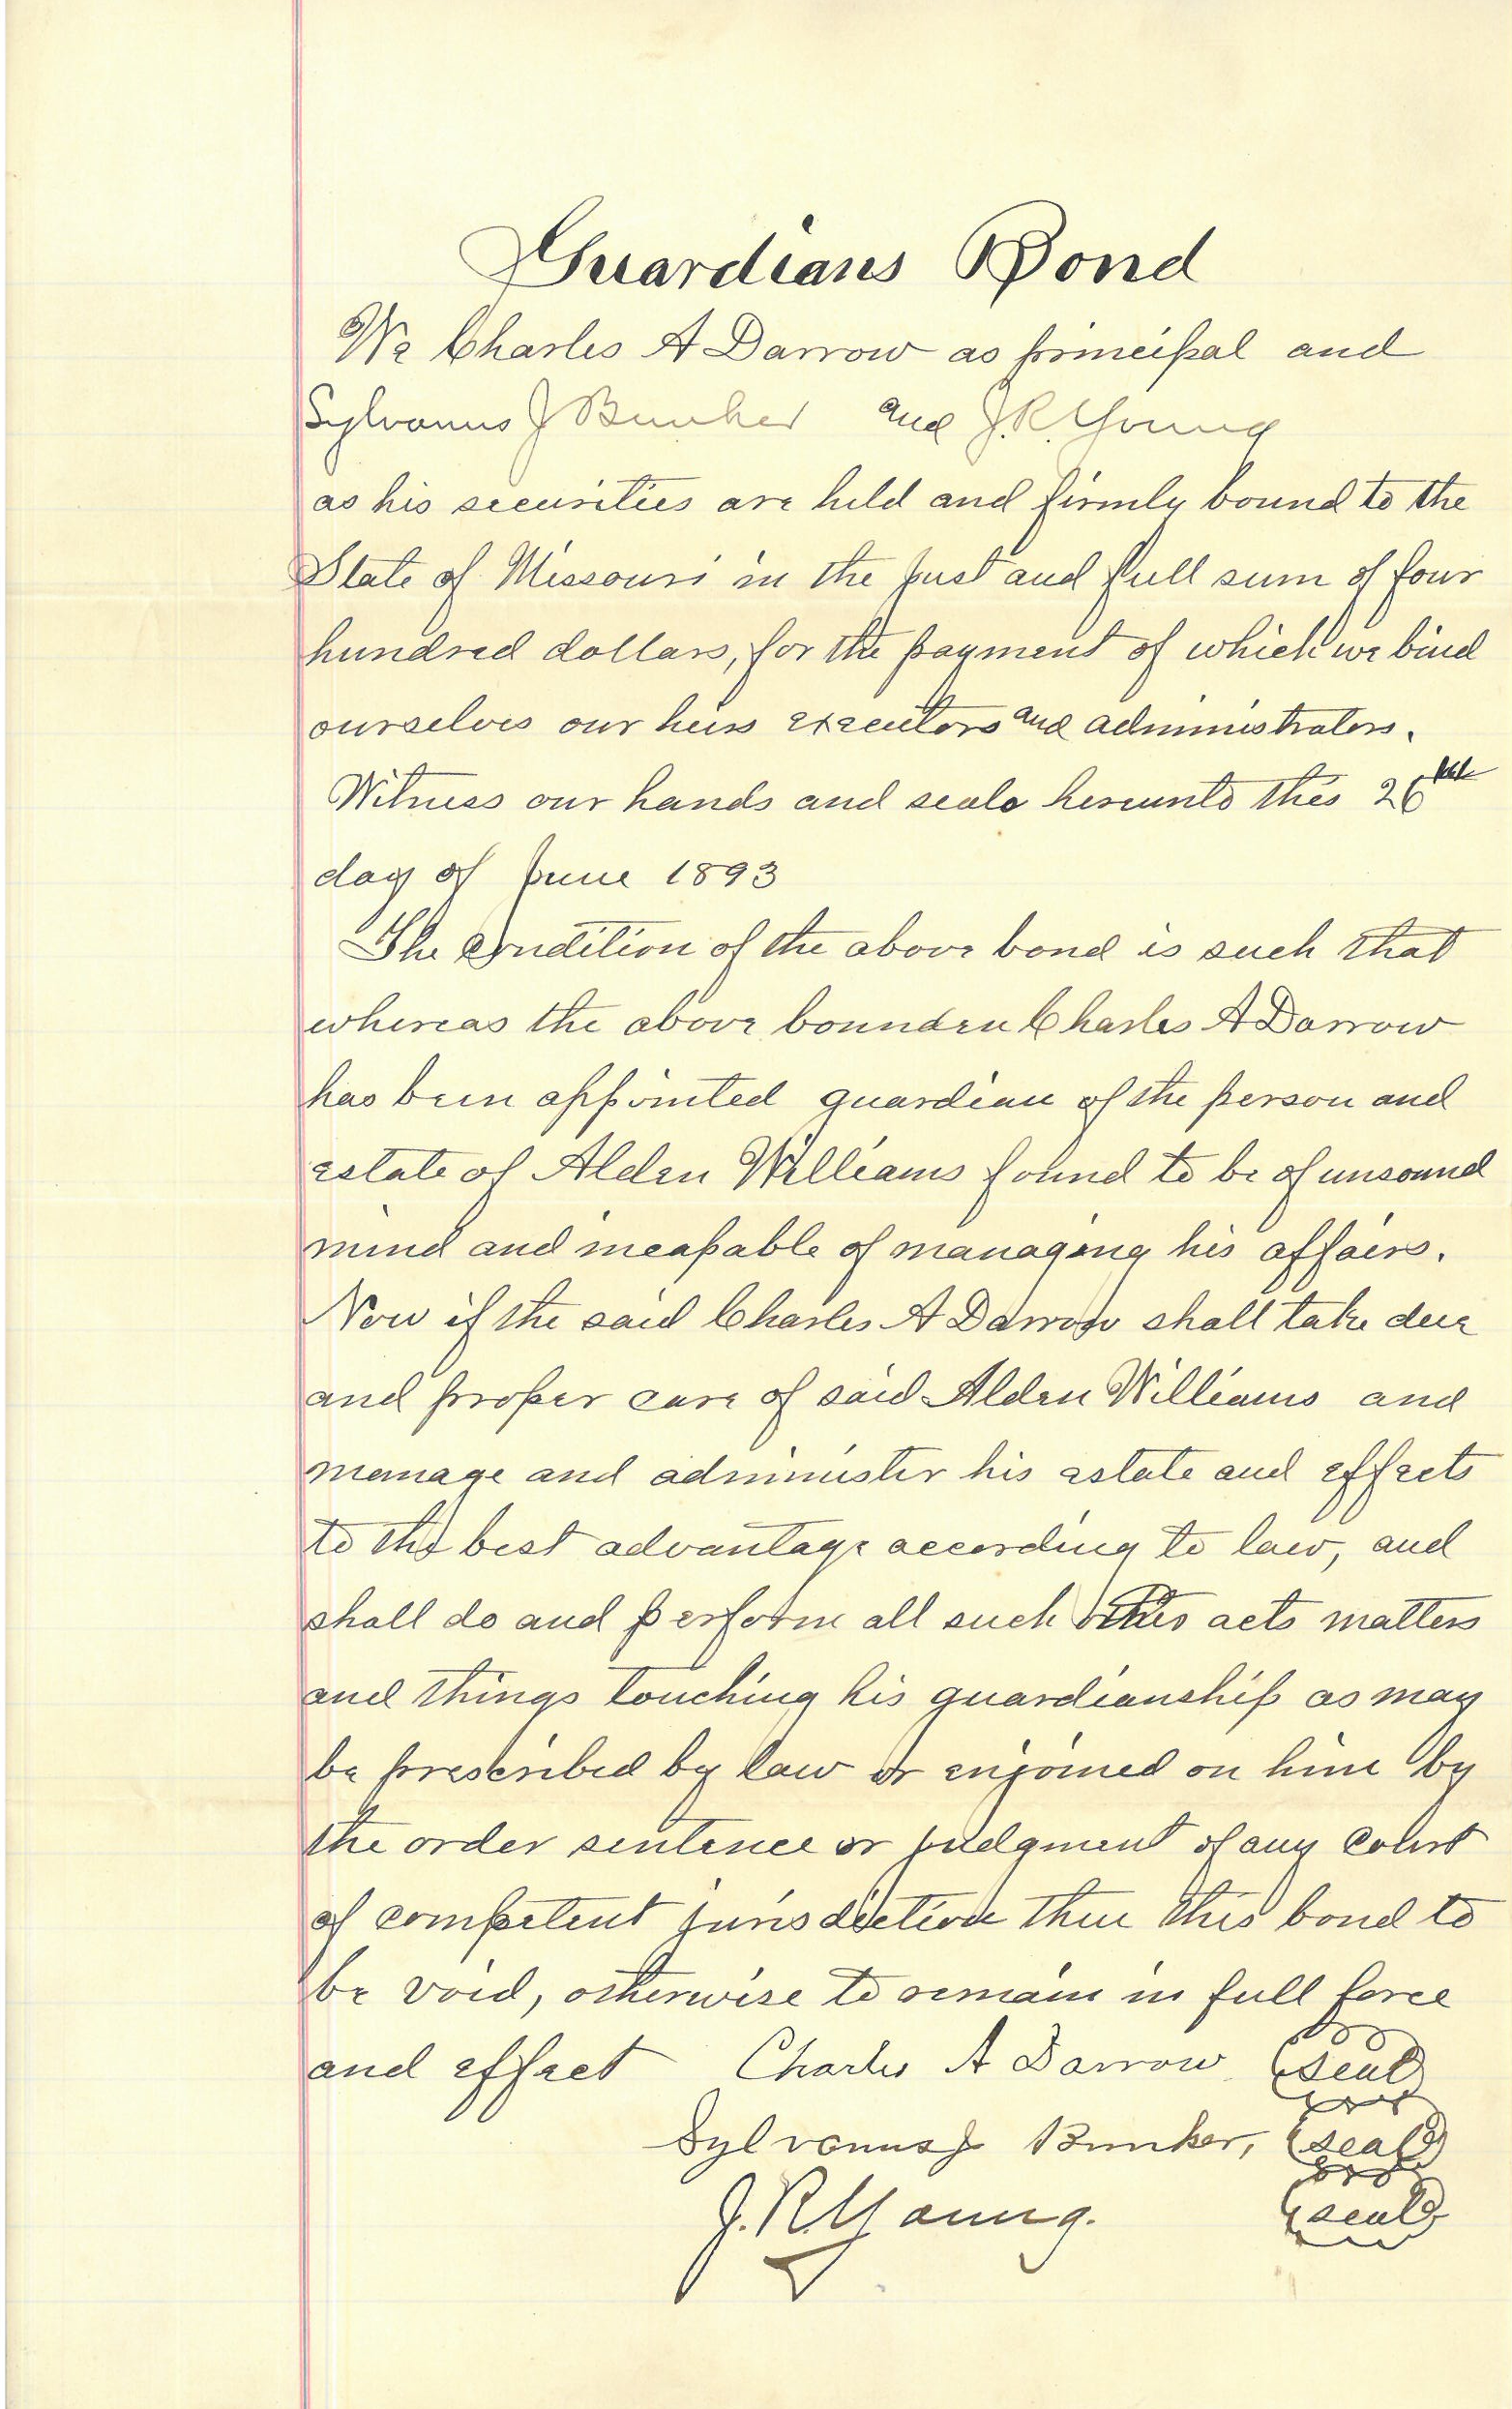 Guardians Bond
We Charles A Darrow as principal and
Sylvanus J Bunker and J. R. Young
as his securities are held and firmly bound to the
State of Missouri in the just and full sum of four
hundred dollars, for the payment of which we bind
ourselves our heirs executors and administrators.
Witness our hands and seals hereunto this 26th
day of June 1893
The condition of the above bond is such that
whereas the above bounden Charles A Darrow
has been appointed guardian of the person and
estate of Alden Williams found to be of unsound
mind and incapable of managing his affairs.
Now if the said Charles A Darrow shall take due
and proper care of said Alden Williams and
manage and administer his estate and effects
to the best advantage according to law, and
shall do and perform all such other acts matters
and things touching his guardianship as may
be prescribed by law or enjoined on him by
the order sentence or judgment of any court
of competent jurisdiction then this bond to
be void, otherwise to remain in full force
and effect Charles A Darrow (seal)
Sylvanus J Bunker, (seal)
J. R. Young. (seal)